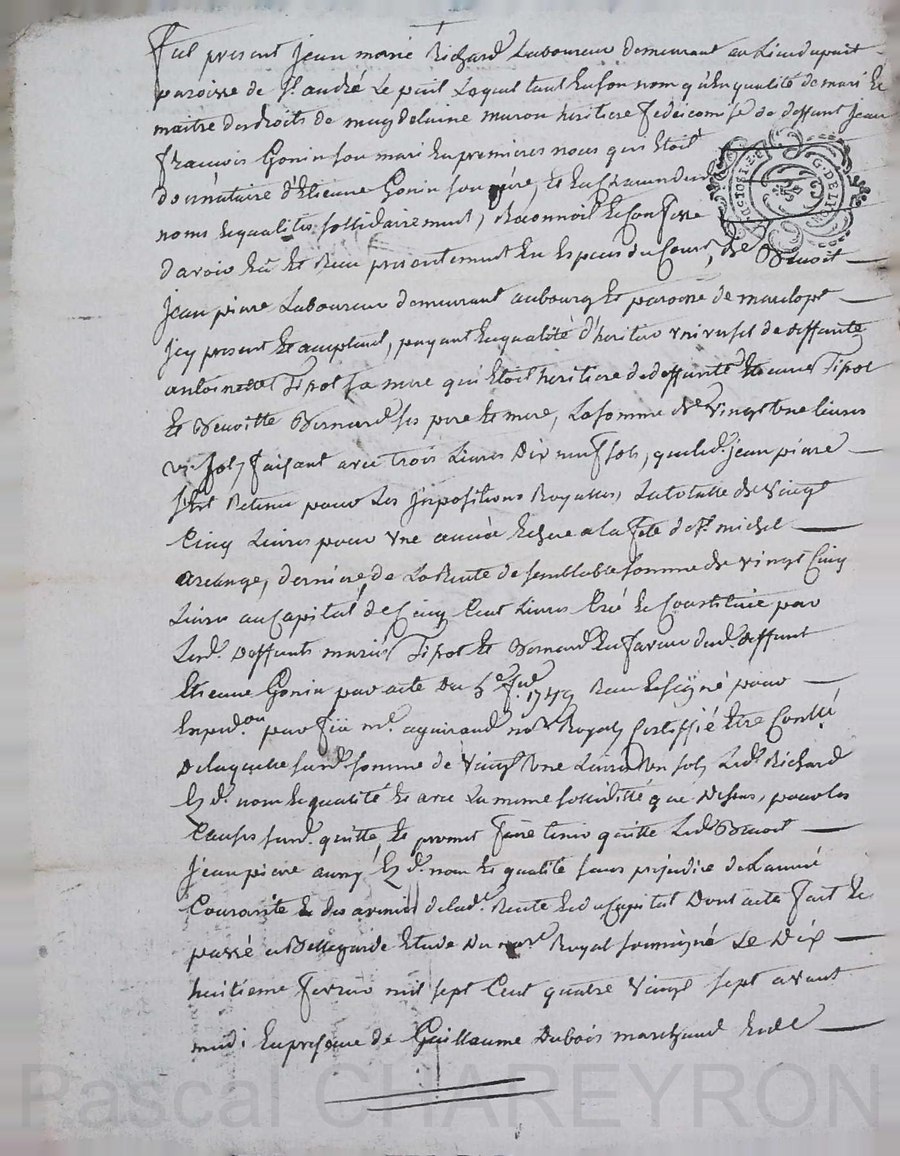 Fut présent jean marie Richard Laboureur demeurant au Lieu dupuit
paroisse de St. andré Le puit Lequel tant En son nom qu'En qualité de mari Et
maitre des droits de magdelaine muron heritiere fideicomise de deffunt jean
françois Gonin son mari En premieres noces qui Etoit
donnataire d'Etienne Gonin son père, Et En
noms Et qualités sollidairement, Reconnoit Et Confesse
d'avoir Eü Et Reçu presentement En Espèces du Cours, de Benoit
jean pierre Laboureur demeurant au bourg Et paroisse de
jcy present Et acceptant, payant En qualité d'heritier Vniversel de deffunte
antoinette Tipot sa mere qui Etoit heritiere de deffunts Etienne Tipot
Et Benoitte Bernard ses pere Et mere, La somme de Vingt Vne Livres
sols faisant avec trois Livres Dix neuf sols, que led. jean pierre
s'est Retenu pour Les jmpositions Royalles, La totalle de Vingt
Cinq Livres pour Vne année Echue a la fete de St. michel
arcange, derniere de La Rente de semblable somme de vingt Cinq
Livres au Capital de Cinq Cent Livres Créé Et Constituée par
Lesd. Deffunts mariés Tipot Et Bernard En faveur dud. deffunt
Etienne Gonin par acte Du 5e. 1749 Reçu Et signé pour
Expedon. par feü me. aguiraud nore. Royal Certiffié Etre Conllé
De laquelle susd. somme de Vingt Vne Livres Vn sols Led. Richard
Ez d. nom Et qualité Et avec La meme sollidité que Dessus, pour les
Causes susd. quitte, Et promet faire tenir quitte Led. Benoit
jean pierre aussy Ez d. nom Et qualité sans préjudice de L'année
Courante Et des avenir de lad. Rente Et du Capital Dont acte fait Et
passé a Bellegarde Etude Du nore. Royal soussigné Le Dix
huitieme fevrier mil sept Cent quatre Vingt sept avant
midi En presence de Guillaume Dubois marchand
G. DE LYON
Pascal CHAREYRON